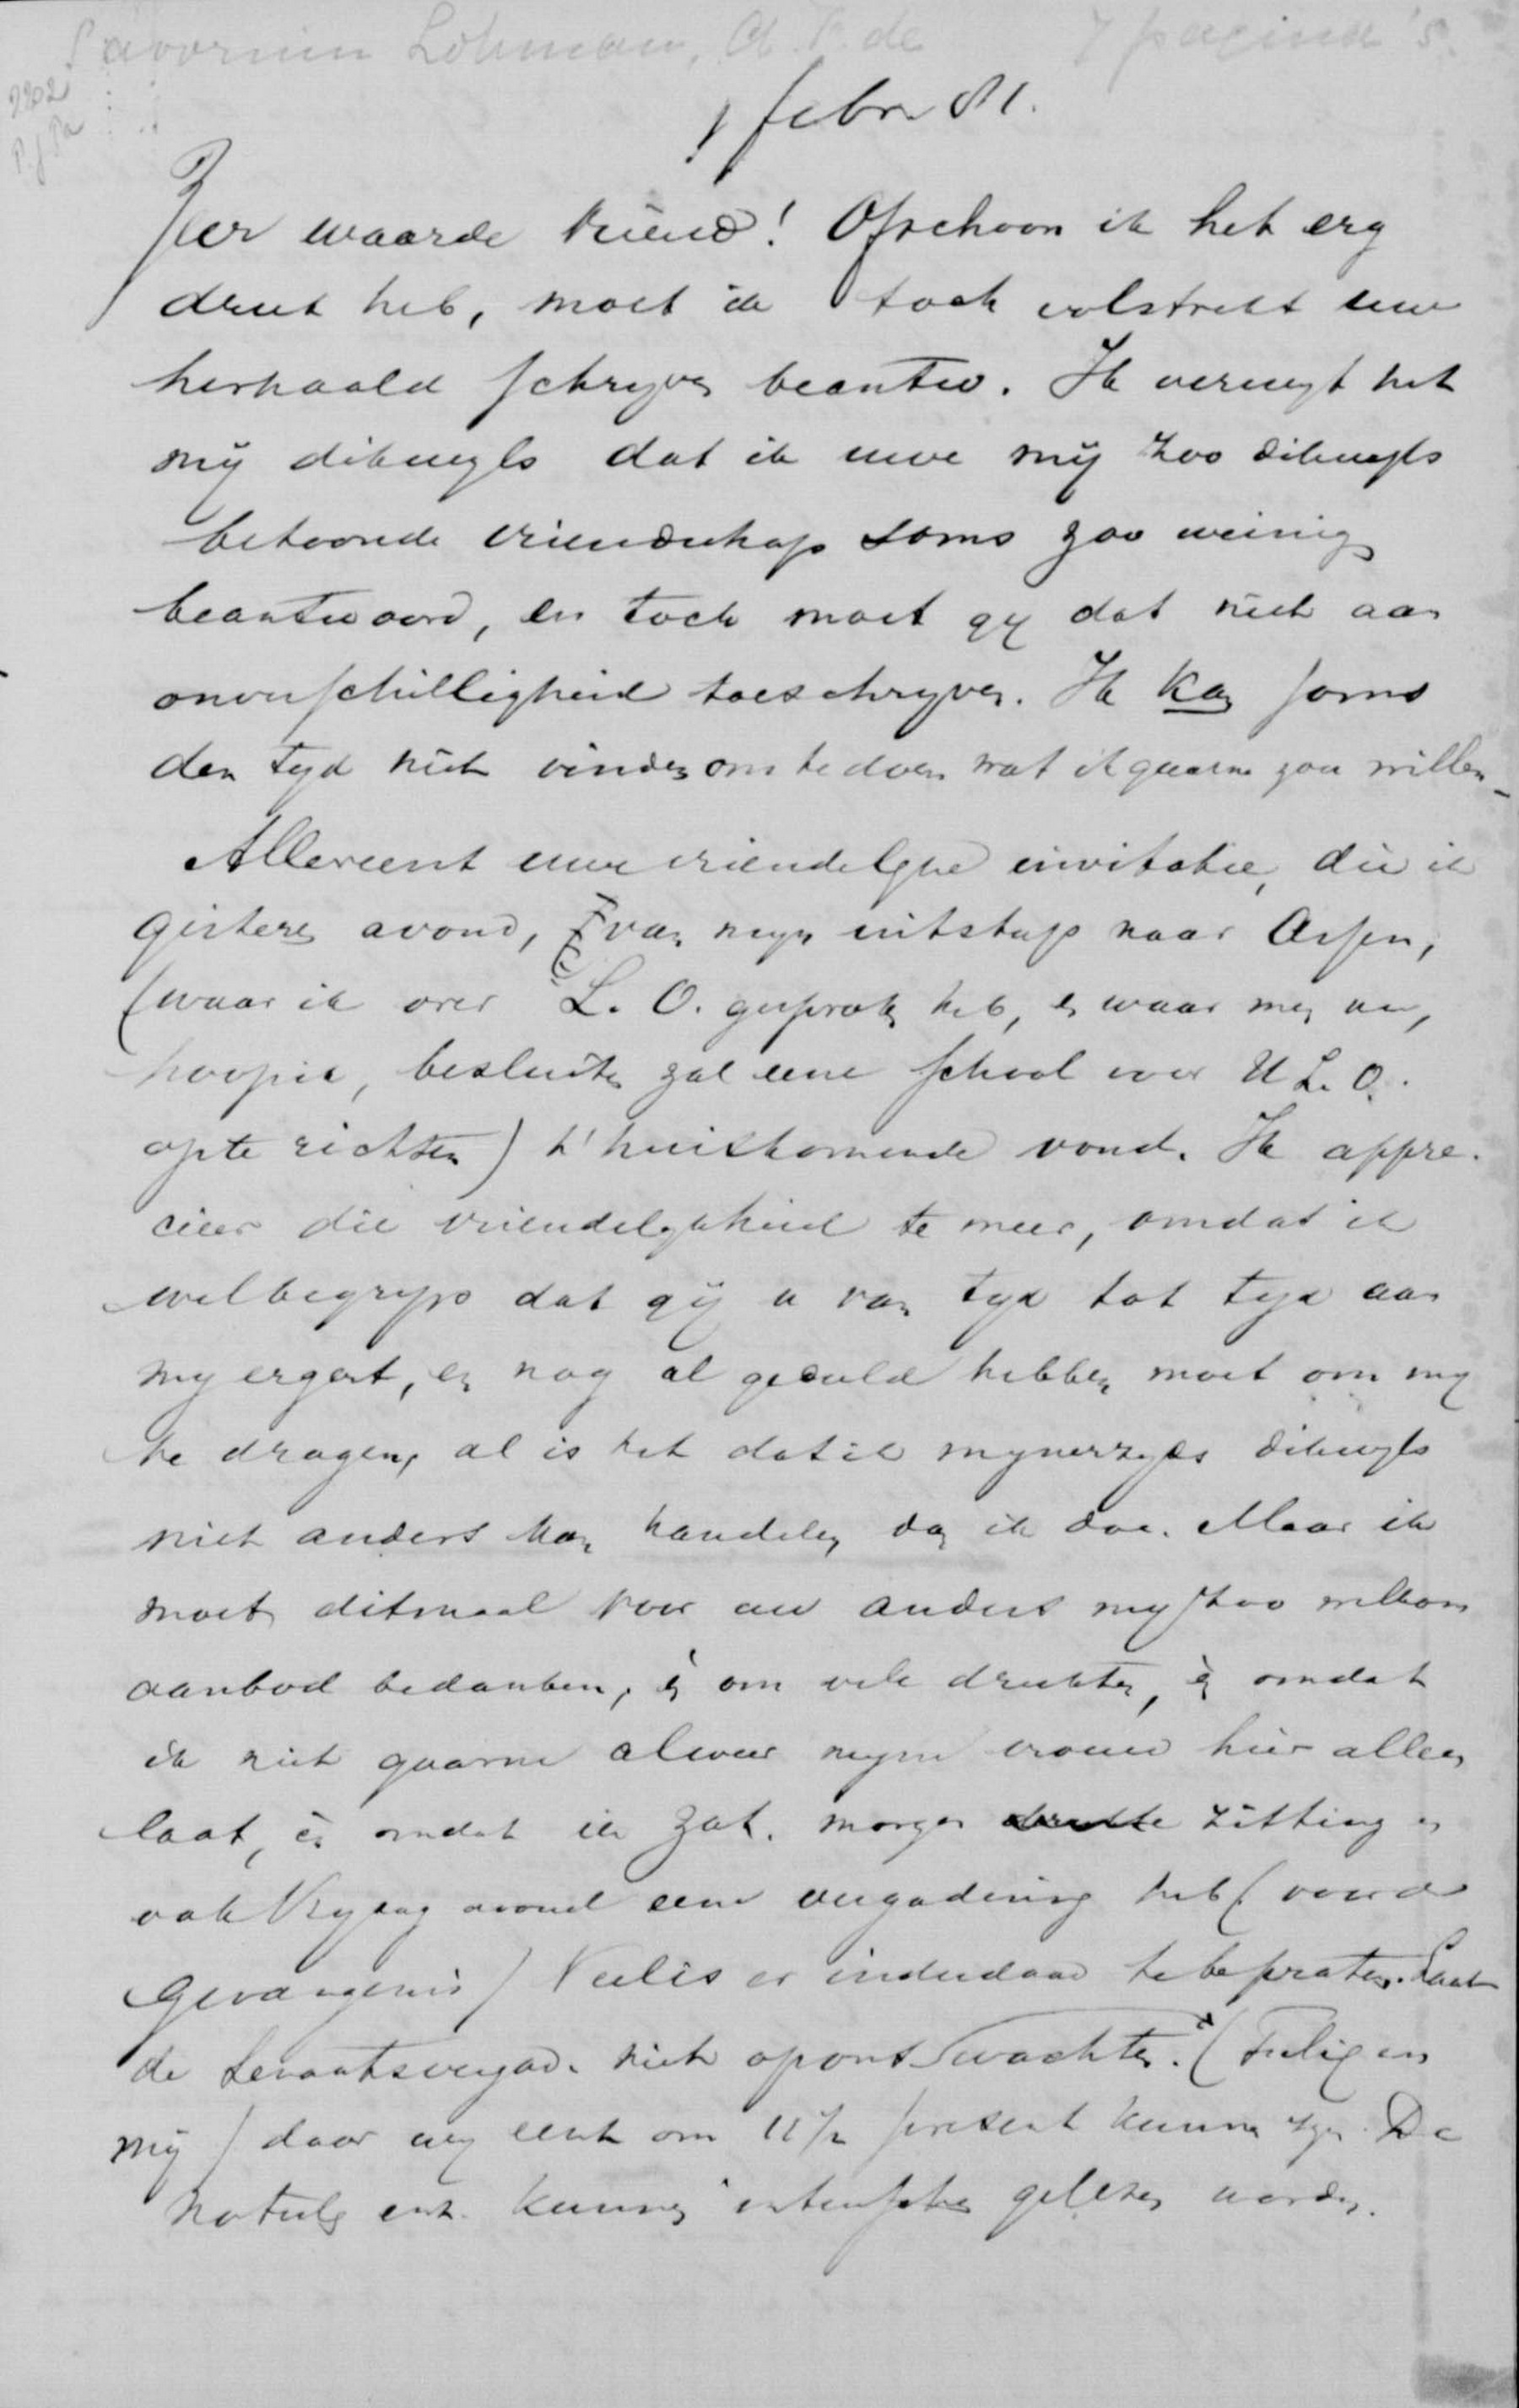 Savornin Lohman, A. F. de 7 pagina's.
2202
1 febr 81.
Zeer waarde vriend! Ofschoon ik het erg
druk heb, moet ik toch volstrekt uw
herhaald schryven beantw. Ik verwyt het
mij dikwyls dat ik uwe mij zoo dikwyls
betoonde vriendschap soms zoo weinig
beantwoord, en toch moet gij dat niet aan
onverschilligheid toeschryven. Ik kan soms
den tyd niet vinden om te doen wat ik gaarne zou willen
Allereerst uwe vriendelyke invitatie, die ik
gisteren avond, van myn uitstap naar Assen,
(waar ik over L. O. gesproken heb, en waar men nu,
hoop ik, besluiten zal eene school voor U L. O.
op te richten) t'huiskomende vond. Ik appre-
cieer die vriendelykheid te meer, omdat ik
wel begryp dat gij u van tyd tot tyd aan
my ergert, en nog al geduld hebben moet om my
te dragen, al is het dat ik mynerzyds dikwyls
niet anders kan handelen dan ik doe. Maar ik
moet ditmaal voor uw anders my zoo welkom
aanbod bedanken, èn om vele drukten, èn omdat
ik niet gaarne alweer myne vrouw hier alleen
laat, èn omdat ik zat. morgen zitting en
ook Vrydag avond eene vergadering heb (voor de
Gevangenis) Veel is er inderdaad te bepraten. Laat
de Senaatsvergad. niet op ons wachten. (Feilig en
mij) daar wy eerst om 11 1/2 present kunnen zyn. De
Notulen enz. kunnen intusschen gelezen worden.